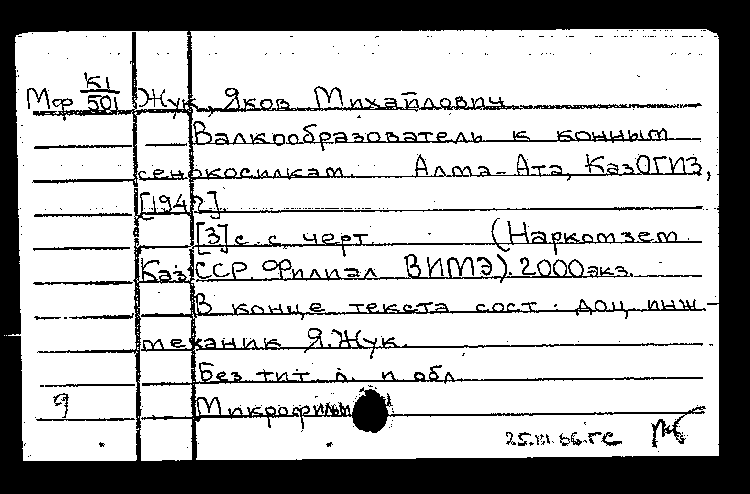 Мф К1/501 Жук, Яков Михайлович
Валкообразователь к конным
сенокосилкам. Алма-Ата, КазОГИЗ,
[194?].
[3] с. с черт. (Наркомзем
КазССР. Филиал ВИМЭ). 2000 экз.
В конце текста сост.: доц. инж.-
механик Я. Жук.
Без тит. л. и обл.
9 Микрофильм
25.III.66. ГС